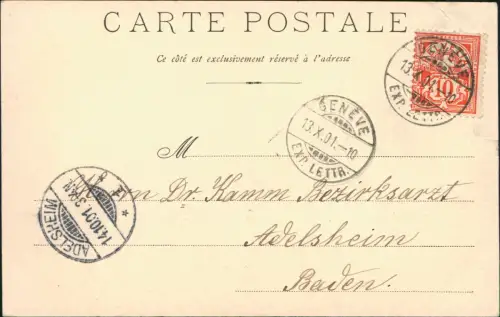 CARTE POSTALE
Ce côté est exclusivement réservé à l'adresse
GENÈVE
13.X.01.-10
EXP. LETTR.
10
GENÈVE
13.X.01.-10
EXP. LETTR.
M
Dr. Kamm Bezirksarzt
Adelsheim
Baden.
ADELSHEIM
14.10.01